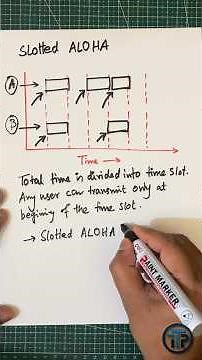 SLOTTED ALOHA
A
B
Time →
Total time is divided into time slot.
Any user can transmit only at
begining of the time slot.
→ Slotted ALOHA
PAINT MARKER